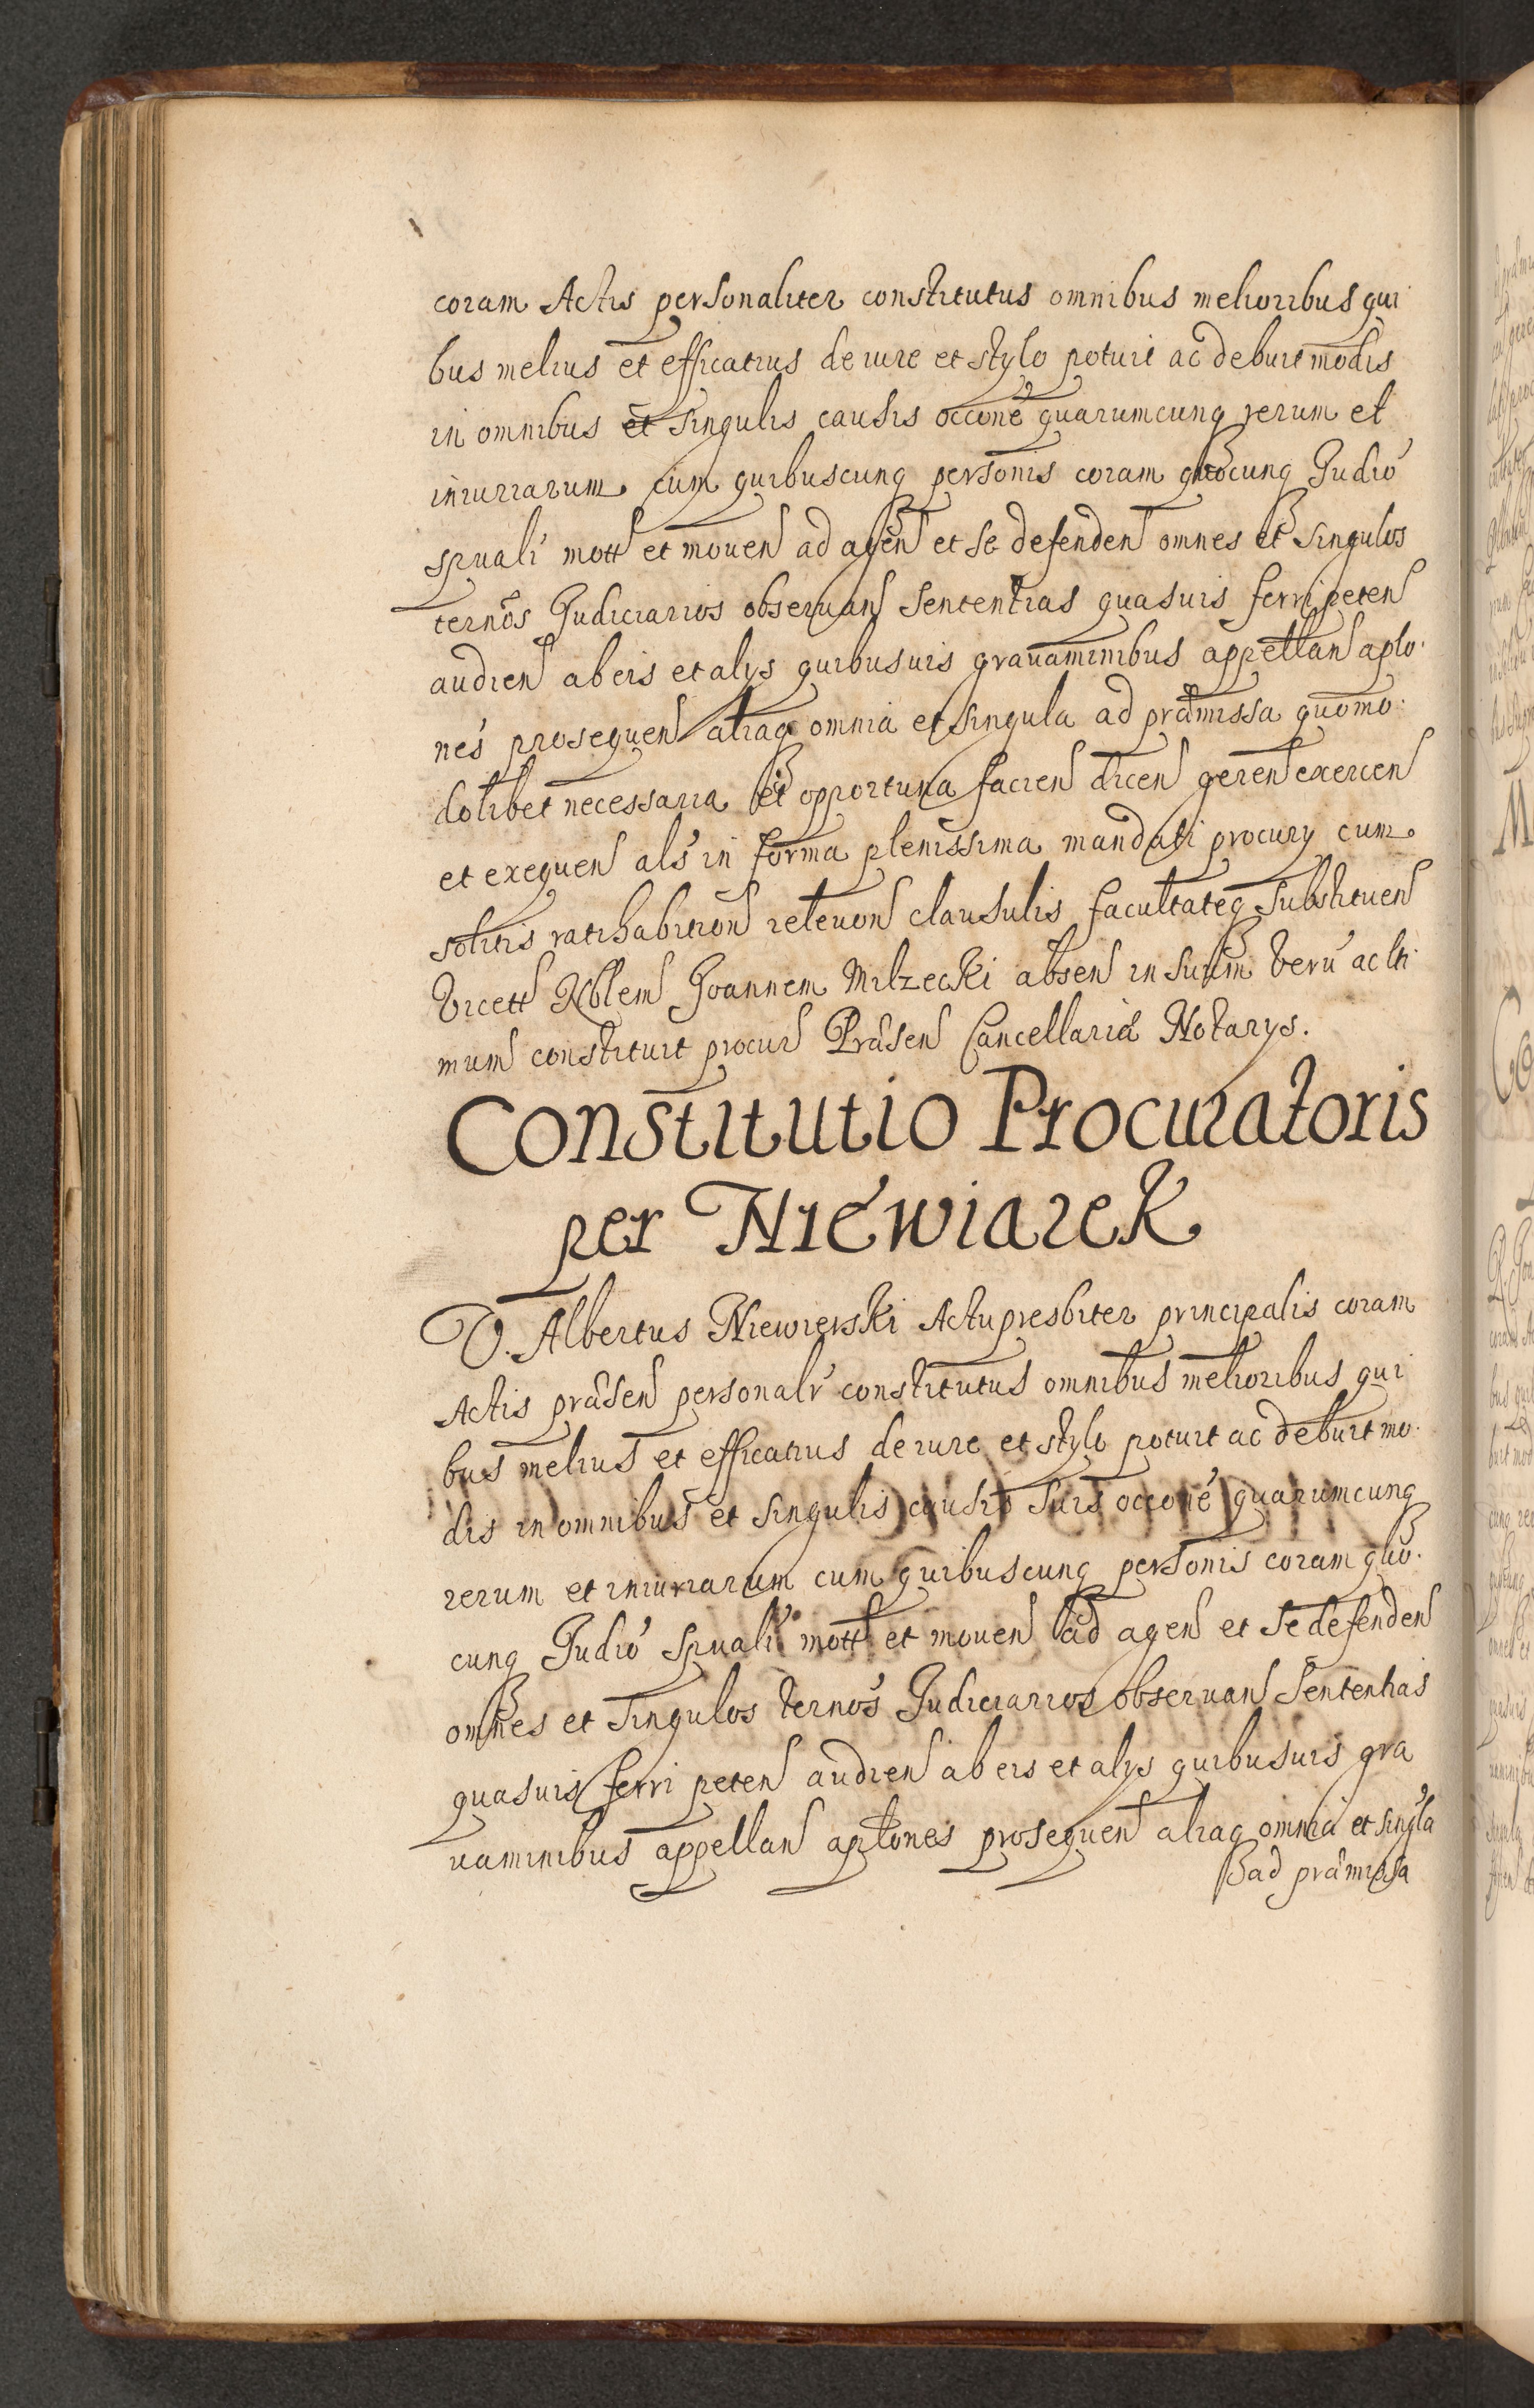 coram Actis personaliter constitutus omnibus melioribus qui
bus melius et efficatius de iure et stylo potuit ac debuit modis
in omnibus et singulis causis occone quarumcunq rerum et
iniuriarum cum quibuscunq personis coram quocunq Judio
spuali mott et mouen ad agen et se defenden omnes et singulos
ternos Judiciarios obseruan sententias quasuis ferri peten
audien ab eis et alys quibusuis grauaminibus appellan aplo
nes prosequen aliaq omnia et singula ad præmissa quomo
dolibet necessaria et opportuna facien dicen geren exercen
et exequen als in forma plenissima mandati procury cum
solitis ratihabition releuon clausulis facultateq substituen
Vicett Nblem Joannem Milzecki absen in suum veru ac lti
mum constituit procur Præsen Cancellariæ Notarys.
Constitutio Procuratoris
per Niewiarek
V. Albertus Niewierski Actu presbiter principalis coram
Actis præsen personalr constitutus omnibus melioribus qui
bus melius et efficatius de iure et stylo potuit ac debuit mo
dis in omnibus et singulis causis suis occone quarumcunq
rerum et iniuriarum cum quibuscunq personis coram quo
cunq Judio spuali mott et mouen ad agen et se defenden
omnes et singulos ternos Judiciarios obseruan sententias
quasuis ferri peten audien ab eis et alys quibusuis gra
uaminibus appellan aplones prosequen aliaq omnia et singla
ad præmissa